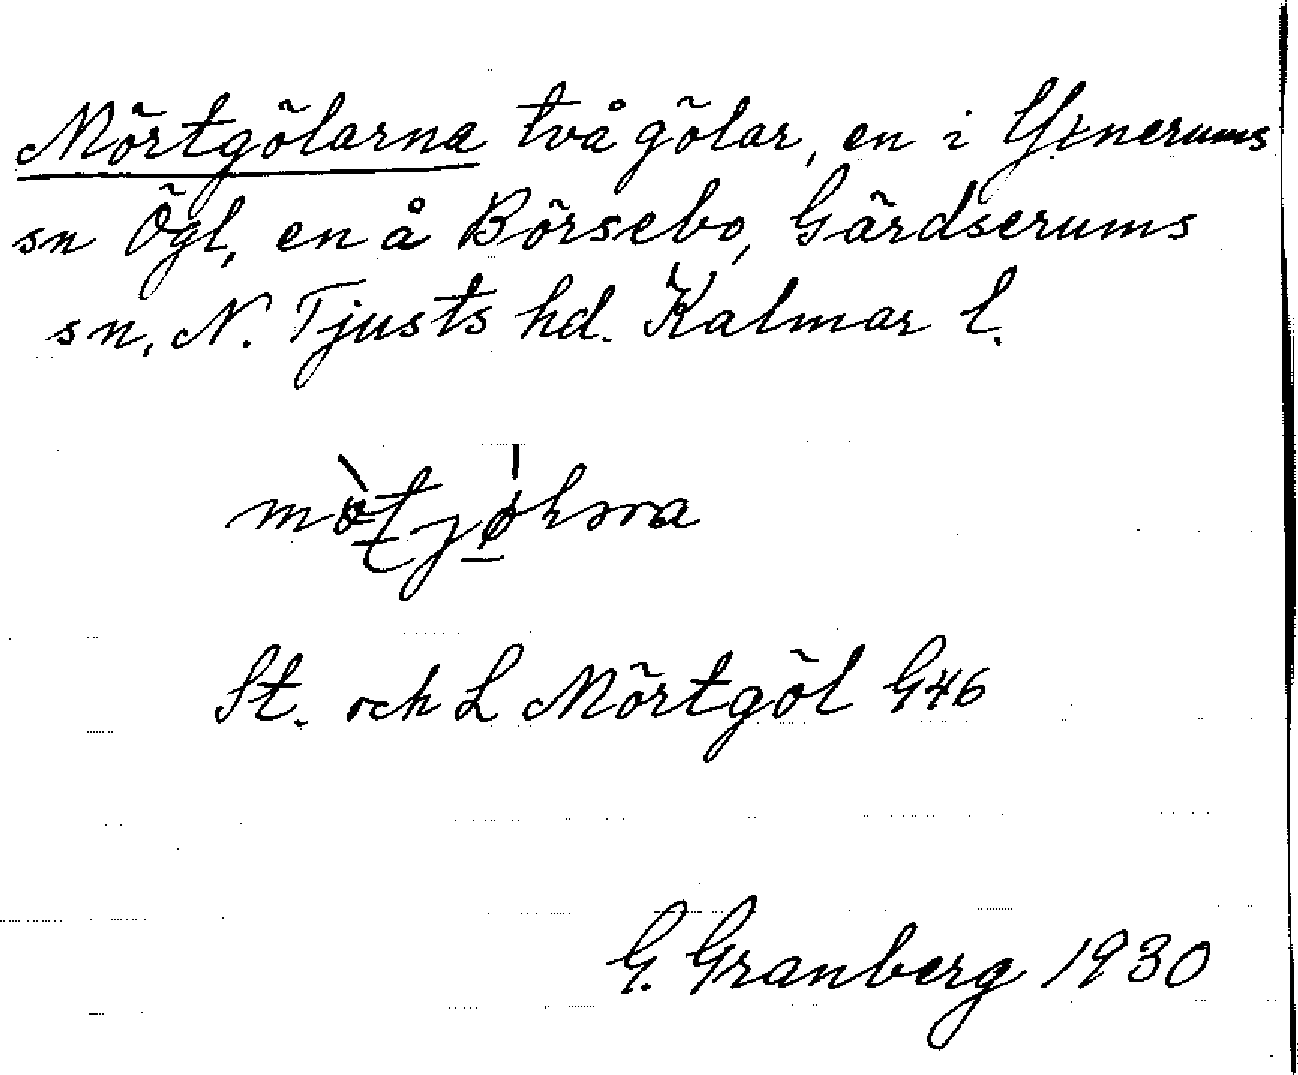 Mörtgölarna två gölar, en i Yxnerums
sn Ögl, en å Börsebo, Gärdserums
sn, N. Tjusts hd. Kalmar l.
St. och L Mörtgöl G46
G. Granberg 1930